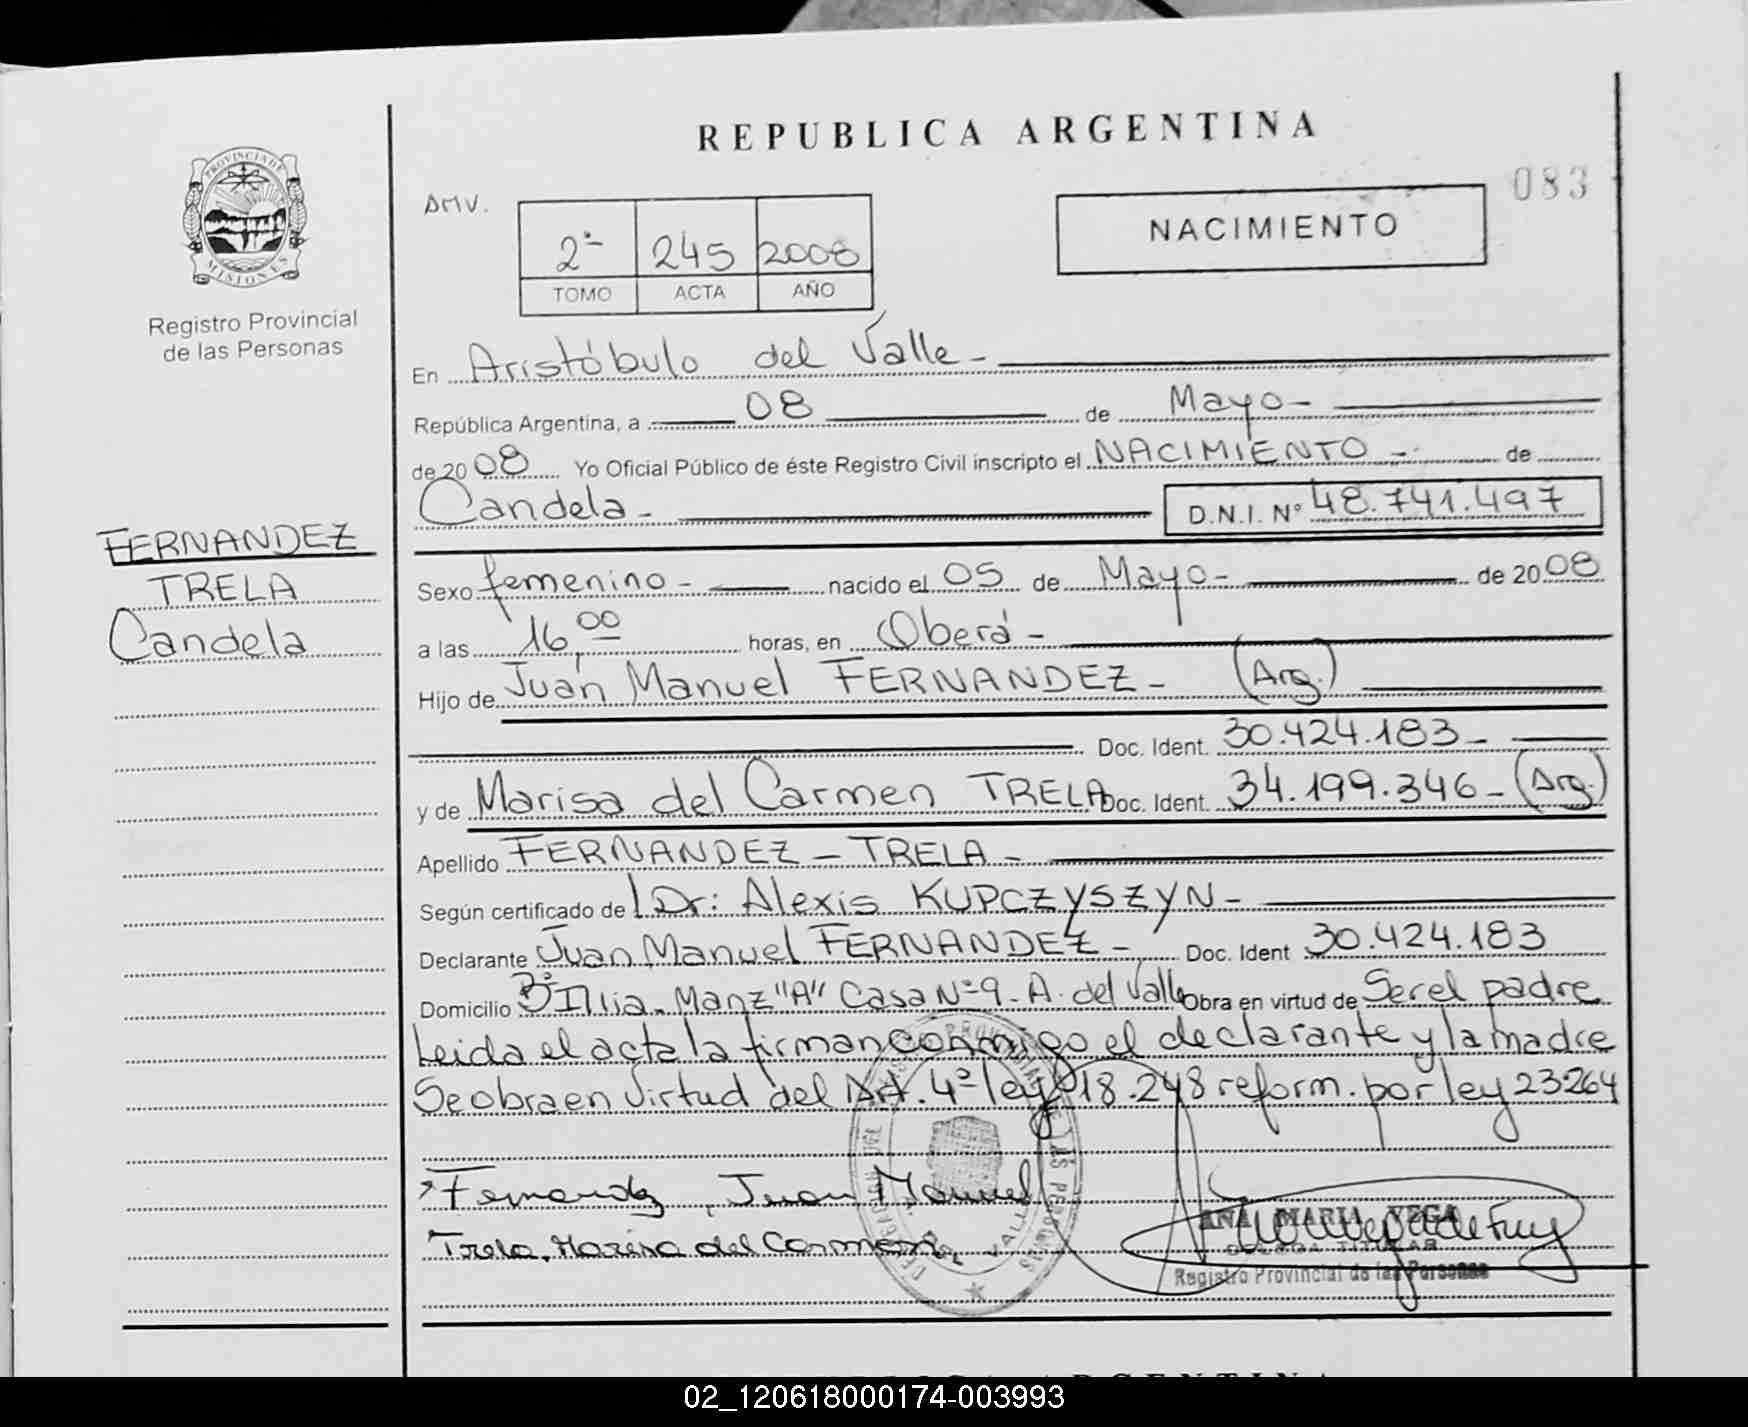 REPUBLICA ARGENTINA
083
PROVINCIA DE
MISIONES
Registro Provincial
de las Personas
AMV.
2º 245 2008
TOMO ACTA AÑO
NACIMIENTO
En Aristóbulo del Valle -
República Argentina, a 08 de Mayo -
de 20 08 Yo Oficial Público de éste Registro Civil inscripto el NACIMIENTO - de
Candela - D.N.I. Nº 48.741.497
FERNANDEZ
TRELA
Candela
Sexo femenino - nacido el 05 de Mayo - de 20 08
a las 16,00 horas, en Oberá -
Hijo de Juan Manuel FERNANDEZ - (Arg.)
Doc. Ident. 30.424.183 -
y de Marisa del Carmen TRELA Doc. Ident. 34.199.346 - (Arg.)
Apellido FERNANDEZ - TRELA -
Según certificado de Dr: Alexis KUPCZYSZYN -
Declarante Juan Manuel FERNANDEZ - Doc. Ident 30.424.183
Domicilio Bº Illia - Manz "A" Casa Nº 9 - A. del Valle Obra en virtud de Ser el padre
Leida el acta la firman conmigo el declarante y la madre
Se obra en Virtud del Art. 4º ley 18.248 reform. por ley 23264
Fernandez, Juan Manuel
Trela, Marisa del Carmen
ANA MARIA VEGA
TITULAR
Registro Provincial de las Personas
02_120618000174-003993